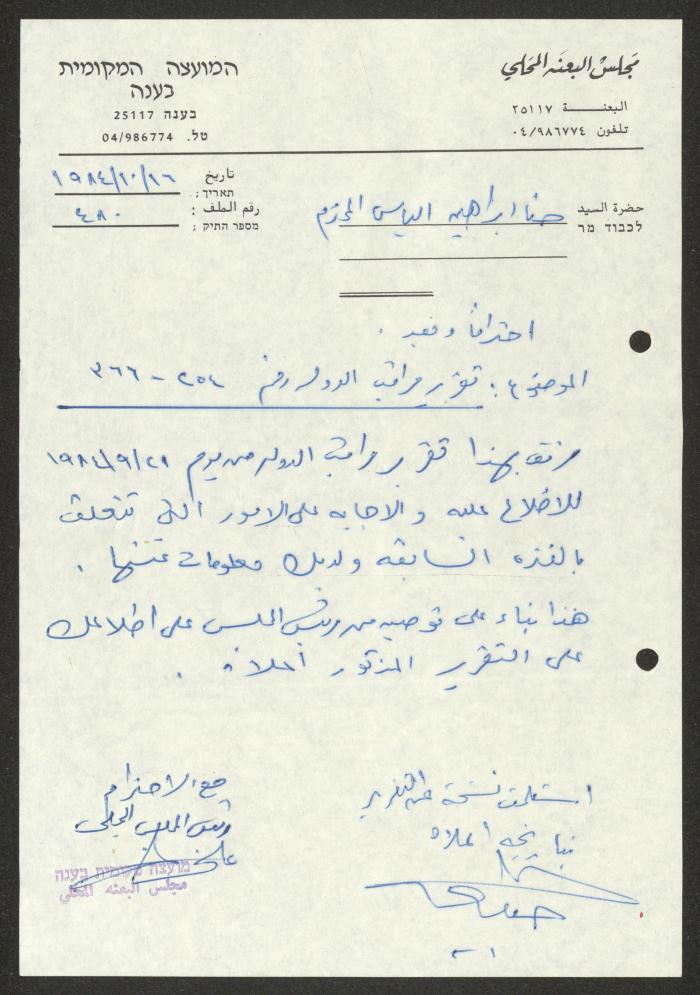 מجلس البعنه المحلي
البعنــــة ٢٥١١٧
تلفون ٠٤/٩٨٦٧٧٤
המועצה המקומית
בענה
בענה 25117
טל. 04/986774
تاريخ ١٩٨٤/١٠/١٦
תאריך:
رقم الملف : ٤٨٠
מספר התיק :
حضرة السيد حنا ابراهيم الياس المحترم
לכבוד מר
احتراماً وبعد .
الموضوع : تقرير مراقب الدولة رقم ٢٥٤ - ٣٦٦
مرفق بهذا تقرير مراقب الدولة من يوم ١٩٨٤/٩/٢١
للاطلاع عليه والاجابه على الامور التي تتعلق
بالفتره السابقه ولديك معلومات عنها .
هذا بناء على توصيه من رئيس المجلس على اطلاعك
على التقرير المذكور اعلاه .
مع الاحترام
رئيس المجلس المحلي
מועצה מקומית בענה
مجلس البعنه المحلي
استلمت نسخة عن التقرير
بتاريخه اعلاه